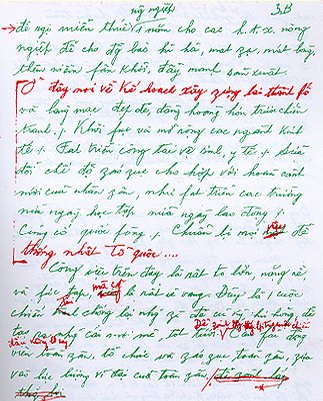 3.B
nông nghiệp
đề ngị miễn thuế 1 năm cho các h.t.x. nông
ngiệp để cho đ/bào hỉ hả, mát zạ, mát lòng,
thêm niềm fấn khởi, đẩy mạnh sản xuất.
Ở đây nói về kế hoạch xây zựng lại thành fố
và làng mạc đẹp đẽ, đàng hoàng hơn trước chiến
tranh / Khôi fục và mở rộng các ngành kinh
tế / Fát triển công tác vệ sinh, y tế / Sửa
đổi chế độ záo zục cho hợp với hoàn cảnh
mới của nhân zân, như fát triển các trường
nửa ngày học tập nửa ngày lao động /
Củng cố quốc fòng / Chuẩn bị mọi việc để
thống nhất Tổ quốc....
Công việc trên đây là rất to lớn, nặng nề
và fức tạp, mà cũng là rất vẻ vang. Đây là 1 cuộc
chiến đấu chống lại những gì đã cũ kỹ, hư hỏng, để
tạo ra những cái mới mẻ tốt tươi. Để zành lấy thắng lợi trong cuộc chiến
đấu này Cần fải động
viên toàn zân, tổ chức và záo zục toàn zân, zựa
vào lực lượng vĩ đại của toàn zân,